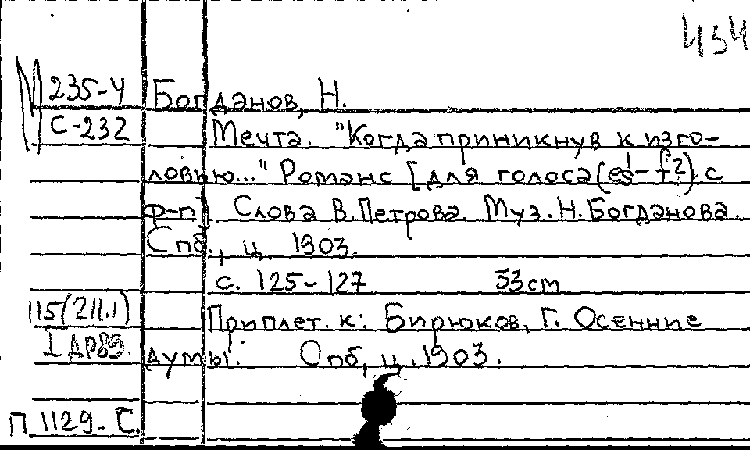 434
235-4 Богданов, Н.
С-232 Мечта. "Когда приникнув к изго-
ловью..." Романс [для голоса (es¹-f²) с
ф-п]. Слова В.Петрова. Муз. Н.Богданова.
Спб., ц. 1903.
с. 125-127 33cm
115(211.1) Приплет. к: Бирюков, Г. Осенние
думы. Спб, ц. 1903.
П 1129-С.